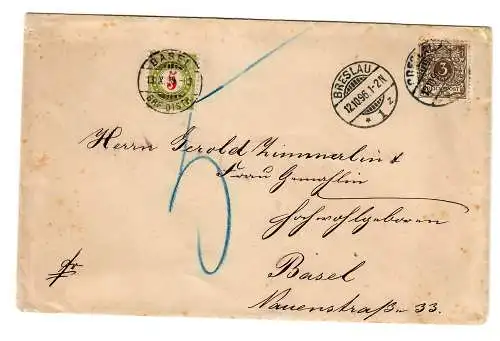 BASEL
5
BRIEFDISTR.
BRESLAU
12.10.96.1-2N
* 1 z
BRESLAU
3
5
Herrn Jerold Zimmerlin &
Frau Gemahlin
Hochwohlgeboren
Basel
fr
Nauenstraße 33.